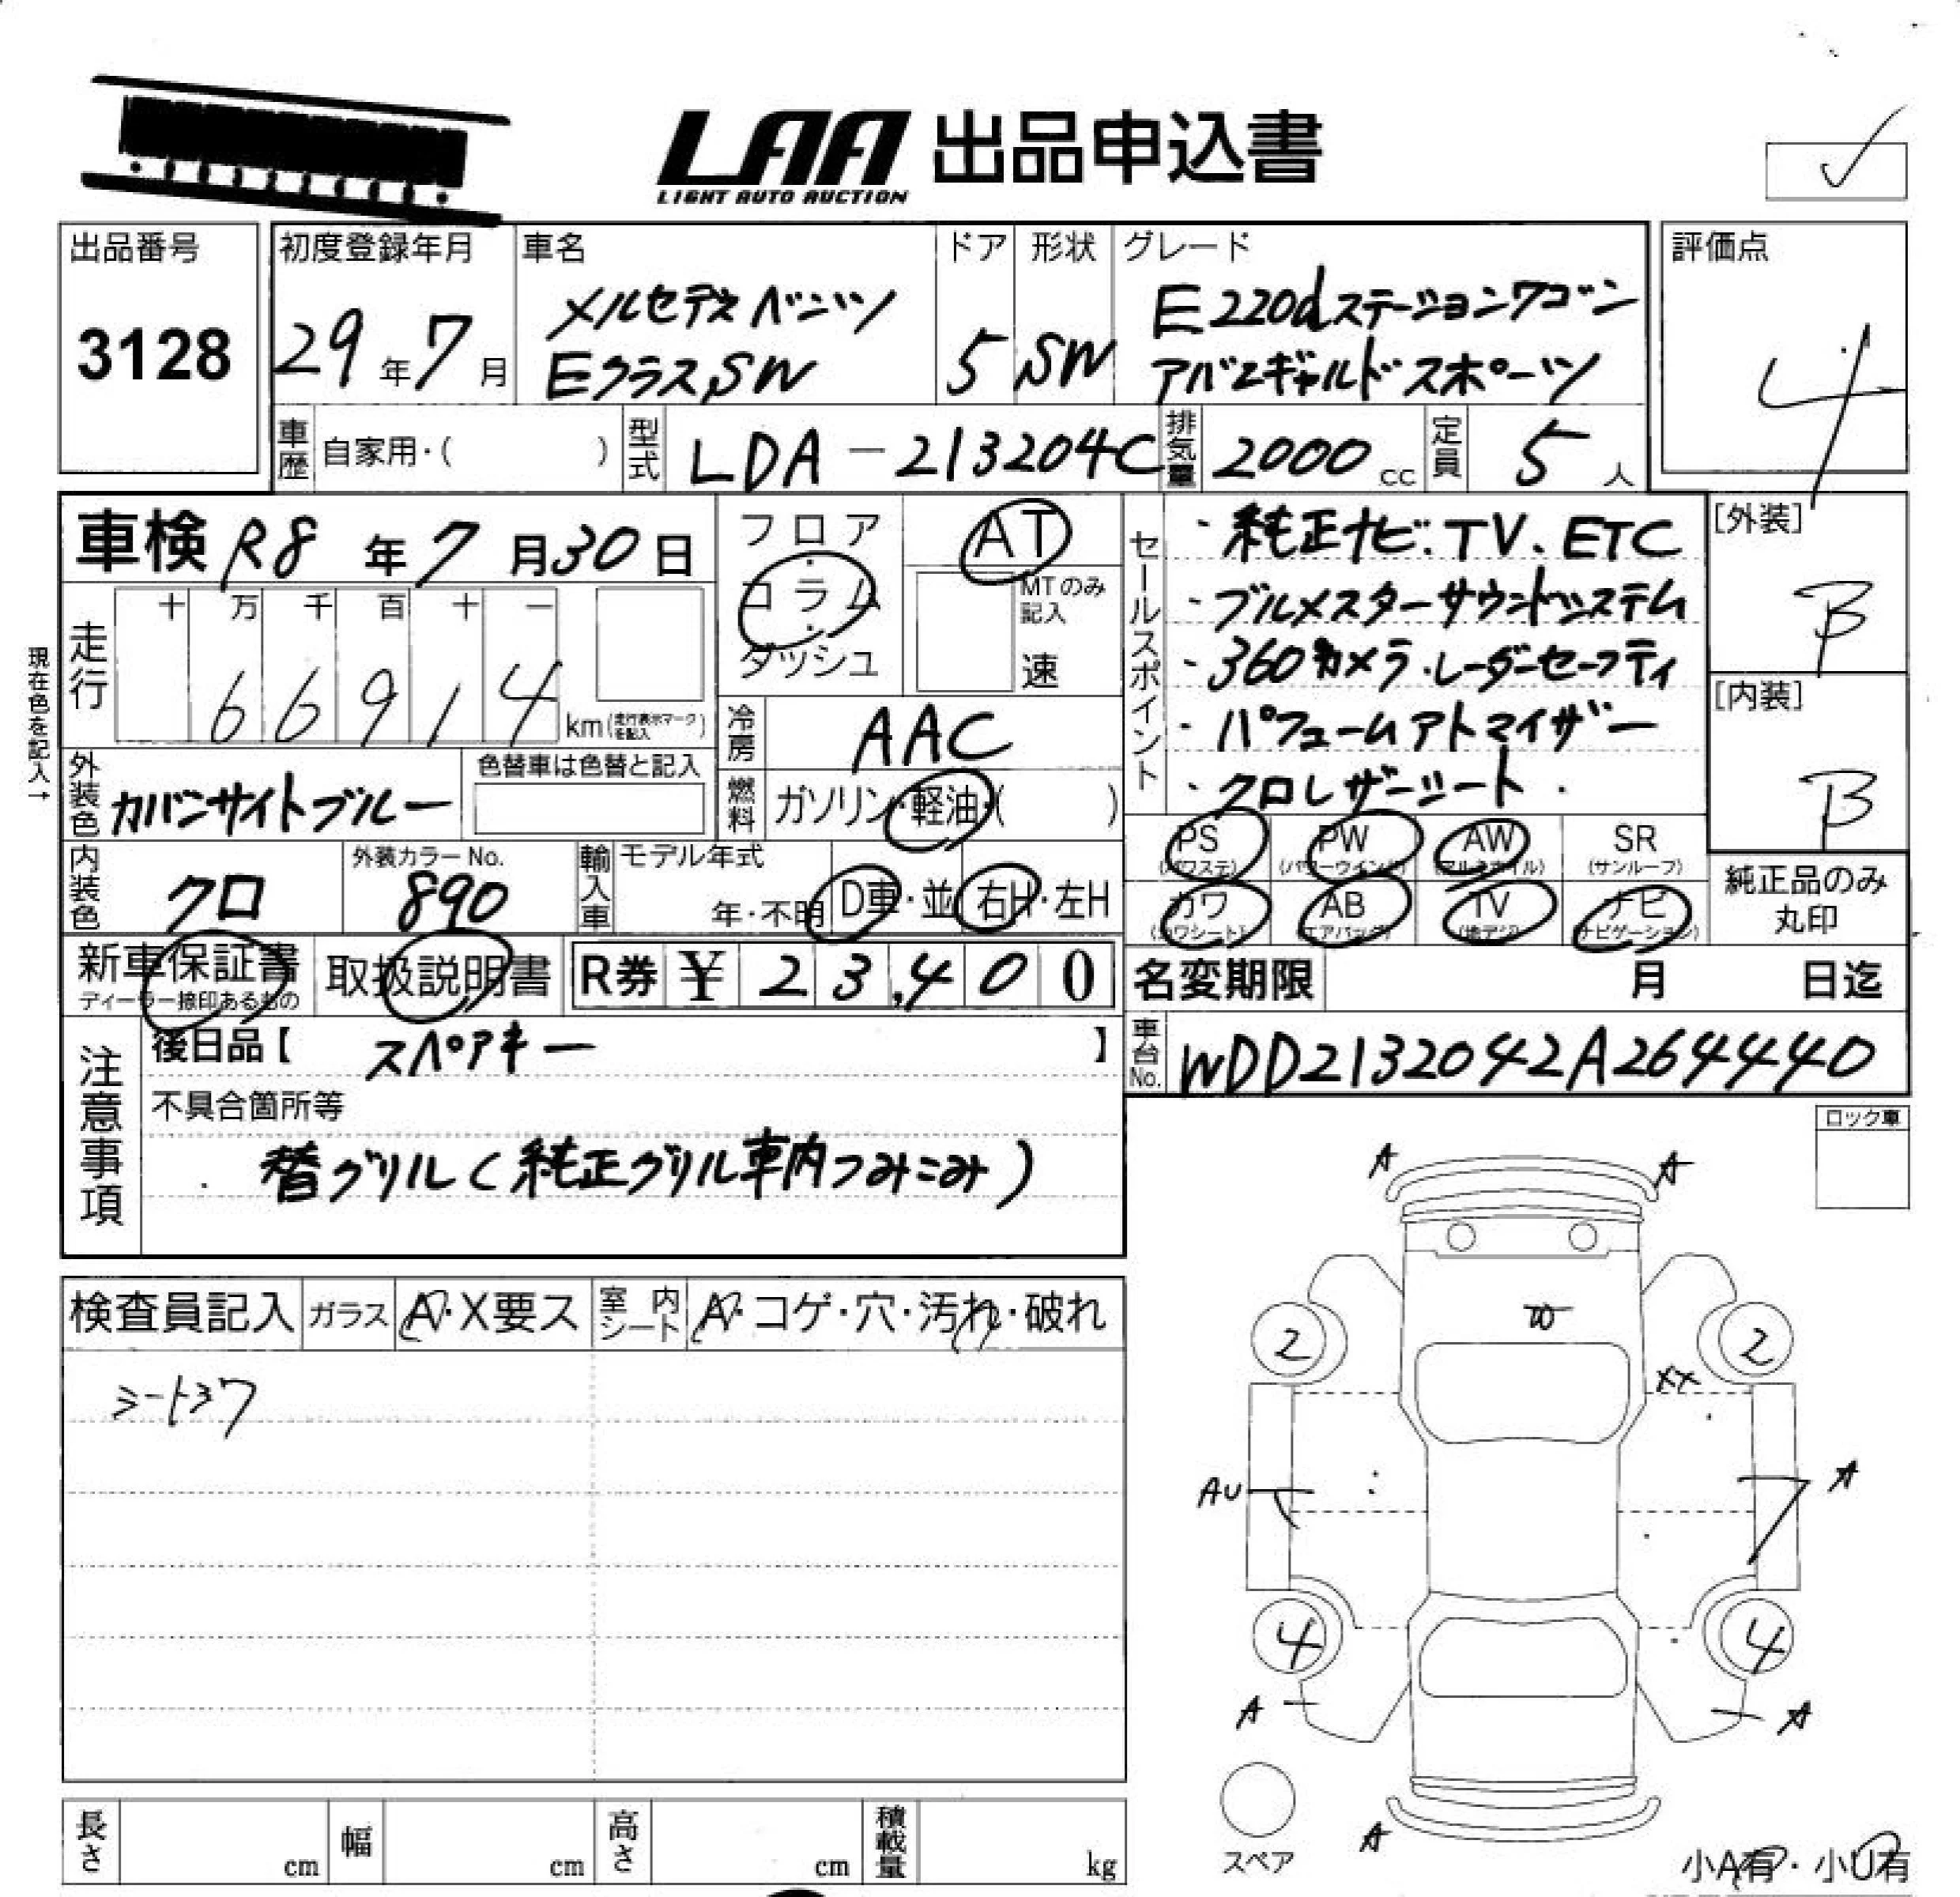 LAA 出品申込書
LIGHT AUTO AUCTION
出品番号
3128
初度登録年月
29年7月
車名
メルセデス ベンツ
Eクラス SW
ドア
5
形状
SW
グレード
E220d ステーションワゴン
アバンギャルド スポーツ
評価点
4
車歴 自家用・( )
型式 LDA-213204C
排気量 2000 cc
定員 5 人
車検 R8 年 7 月 30 日
フロア・コラム・ダッシュ
AT
MTのみ記入
速
現在色を記入→
走行 十 万 千 百 十 一
66914 km (走行表示マークを記入)
冷房 AAC
燃料 ガソリン・軽油・( )
外装色 カバンサイトブルー
色替車は色替と記入
内装色 クロ
外装カラーNo.
890
輸入車 モデル年式
年・不明
D車・並
右H・左H
セールスポイント
・純正ナビ.TV.ETC
・ブルメスターサウンドシステム
・360カメラ・レーダーセーフティ
・パフュームアトマイザー
・クロレザーシート.
[外装]
B
[内装]
B
PS (パワステ)
PW (パワーウインド)
AW (アルミホイル)
SR (サンルーフ)
カワ (カワシート)
AB (エアバッグ)
TV (地デジ)
ナビ (ナビゲーション)
純正品のみ
丸印
新車保証書
ディーラー捺印あるもの
取扱説明書
R券 ¥23,400
名変期限 月 日迄
車台No. WDD2132042A264440
注意事項
後日品【 スペアキー 】
不具合箇所等
替グリル(純正グリル車内つみこみ)
ロック車
検査員記入 ガラス A・X要ス 室内シート A・コゲ・穴・汚れ・破れ
シート3ワ
A A
2 2
XX
AU A
4 4
A A
A
スペア
小A有・小U有
長さ cm
幅 cm
高さ cm
積載量 kg